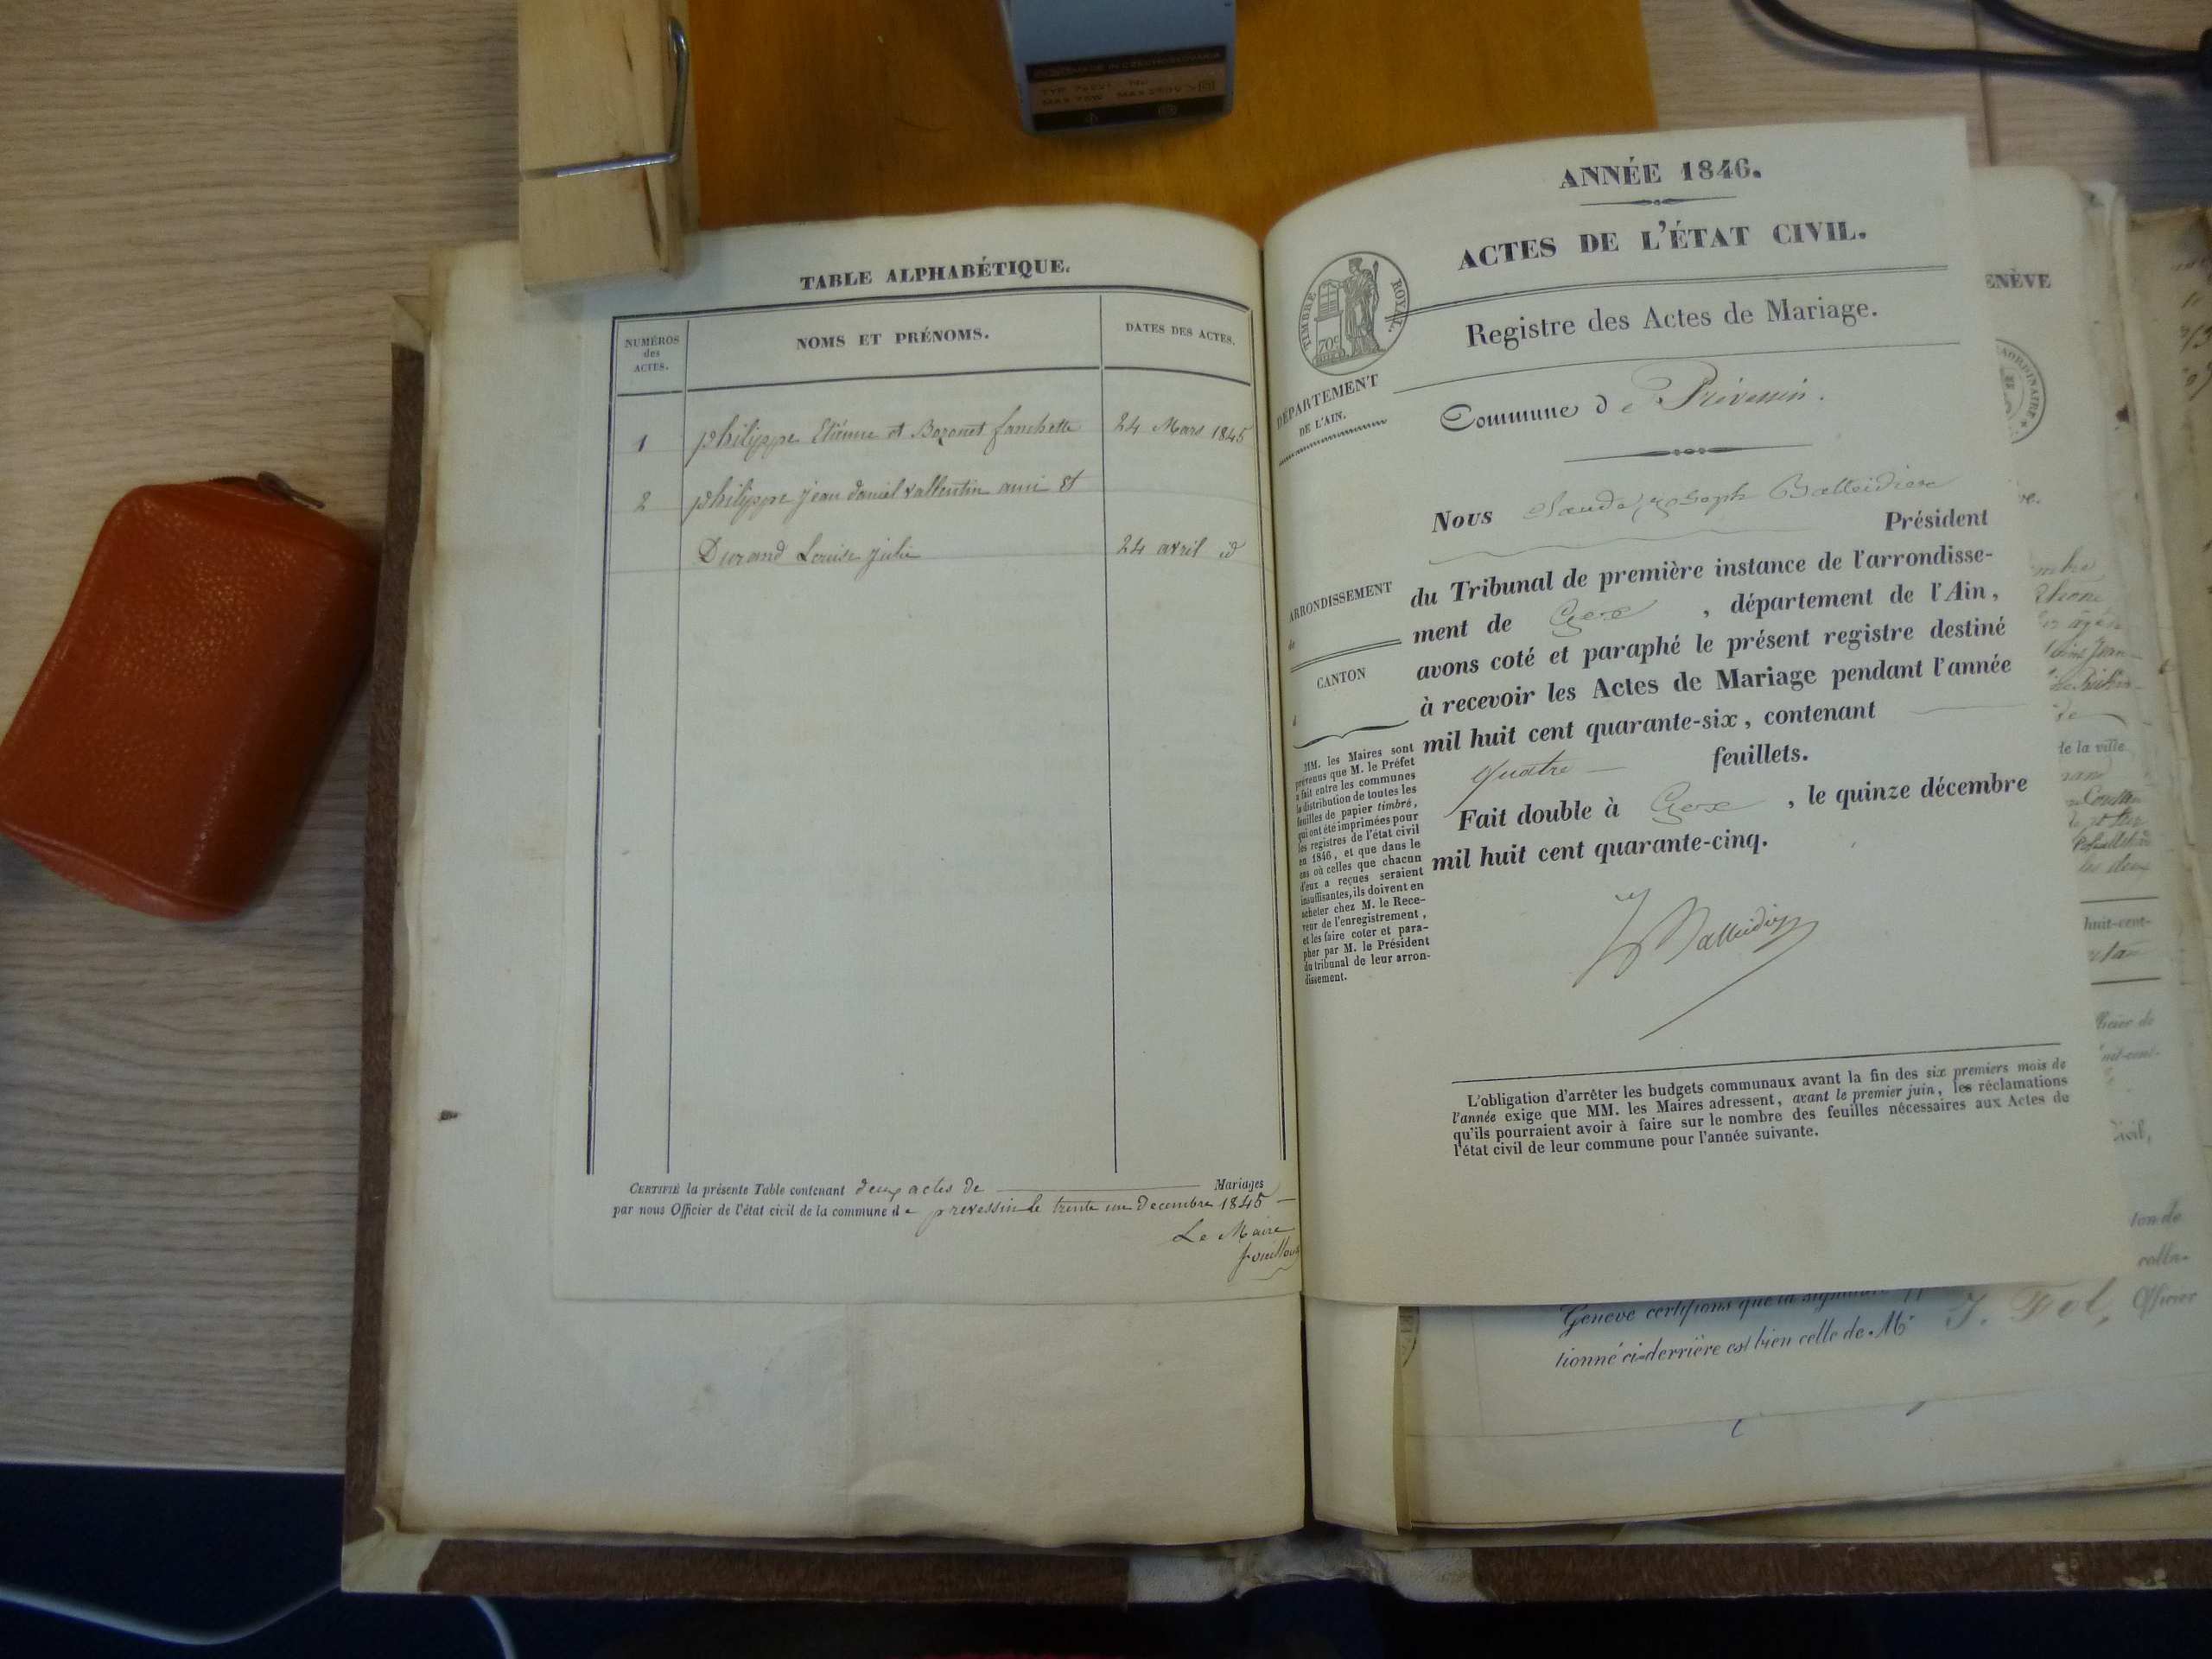 TABLE ALPHABÉTIQUE.
NUMÉROS
des
ACTES.
NOMS ET PRÉNOMS.
DATES DES ACTES.
1 philippe Etienne et Bozonet fanchette 24 Mars 1845
2 philippe jean daniel vallentin ami et
Durand Louise julie 24 avril id
CERTIFIÉ la présente Table contenant deux actes de Mariages
par nous Officier de l'état civil de la commune de prevessin le trente un Decembre 1845
Le Maire
ANNÉE 1846.
ACTES DE L'ÉTAT CIVIL.
TIMBRE ROYAL.
70c
Registre des Actes de Mariage.
DÉPARTEMENT
DE L'AIN.
Commune de Prévessin.
Nous Claude Joseph Balleidier
Président
du Tribunal de première instance de l'arrondisse-
ment de Gex, département de l'Ain,
avons coté et paraphé le présent registre destiné
à recevoir les Actes de Mariage pendant l'année
mil huit cent quarante-six, contenant
quatre feuillets.
Fait double à Gex, le quinze décembre
mil huit cent quarante-cinq.
Balleidier
ARRONDISSEMENT
de
CANTON
d
MM. les Maires sont
prévenus que M. le Préfet
a fait entre les communes
la distribution de toutes les
feuilles de papier timbré,
qui ont été imprimées pour
les registres de l'état civil
en 1846, et que dans le
cas où celles que chacun
d'eux a reçues seraient
insuffisantes, ils doivent en
acheter chez M. le Rece-
veur de l'enregistrement,
et les faire coter et para-
pher par M. le Président
du tribunal de leur arron-
dissement.
L'obligation d'arrêter les budgets communaux avant la fin des six premiers mois de
l'année exige que MM. les Maires adressent, avant le premier juin, les réclamations
qu'ils pourraient avoir à faire sur le nombre des feuilles nécessaires aux Actes de
l'état civil de leur commune pour l'année suivante.
ENÈVE
de la ville
huit-cent-
Civil,
Genève certifions que la signature
J. Fol, Officier
tionné ci-derrière est bien celle de Mr